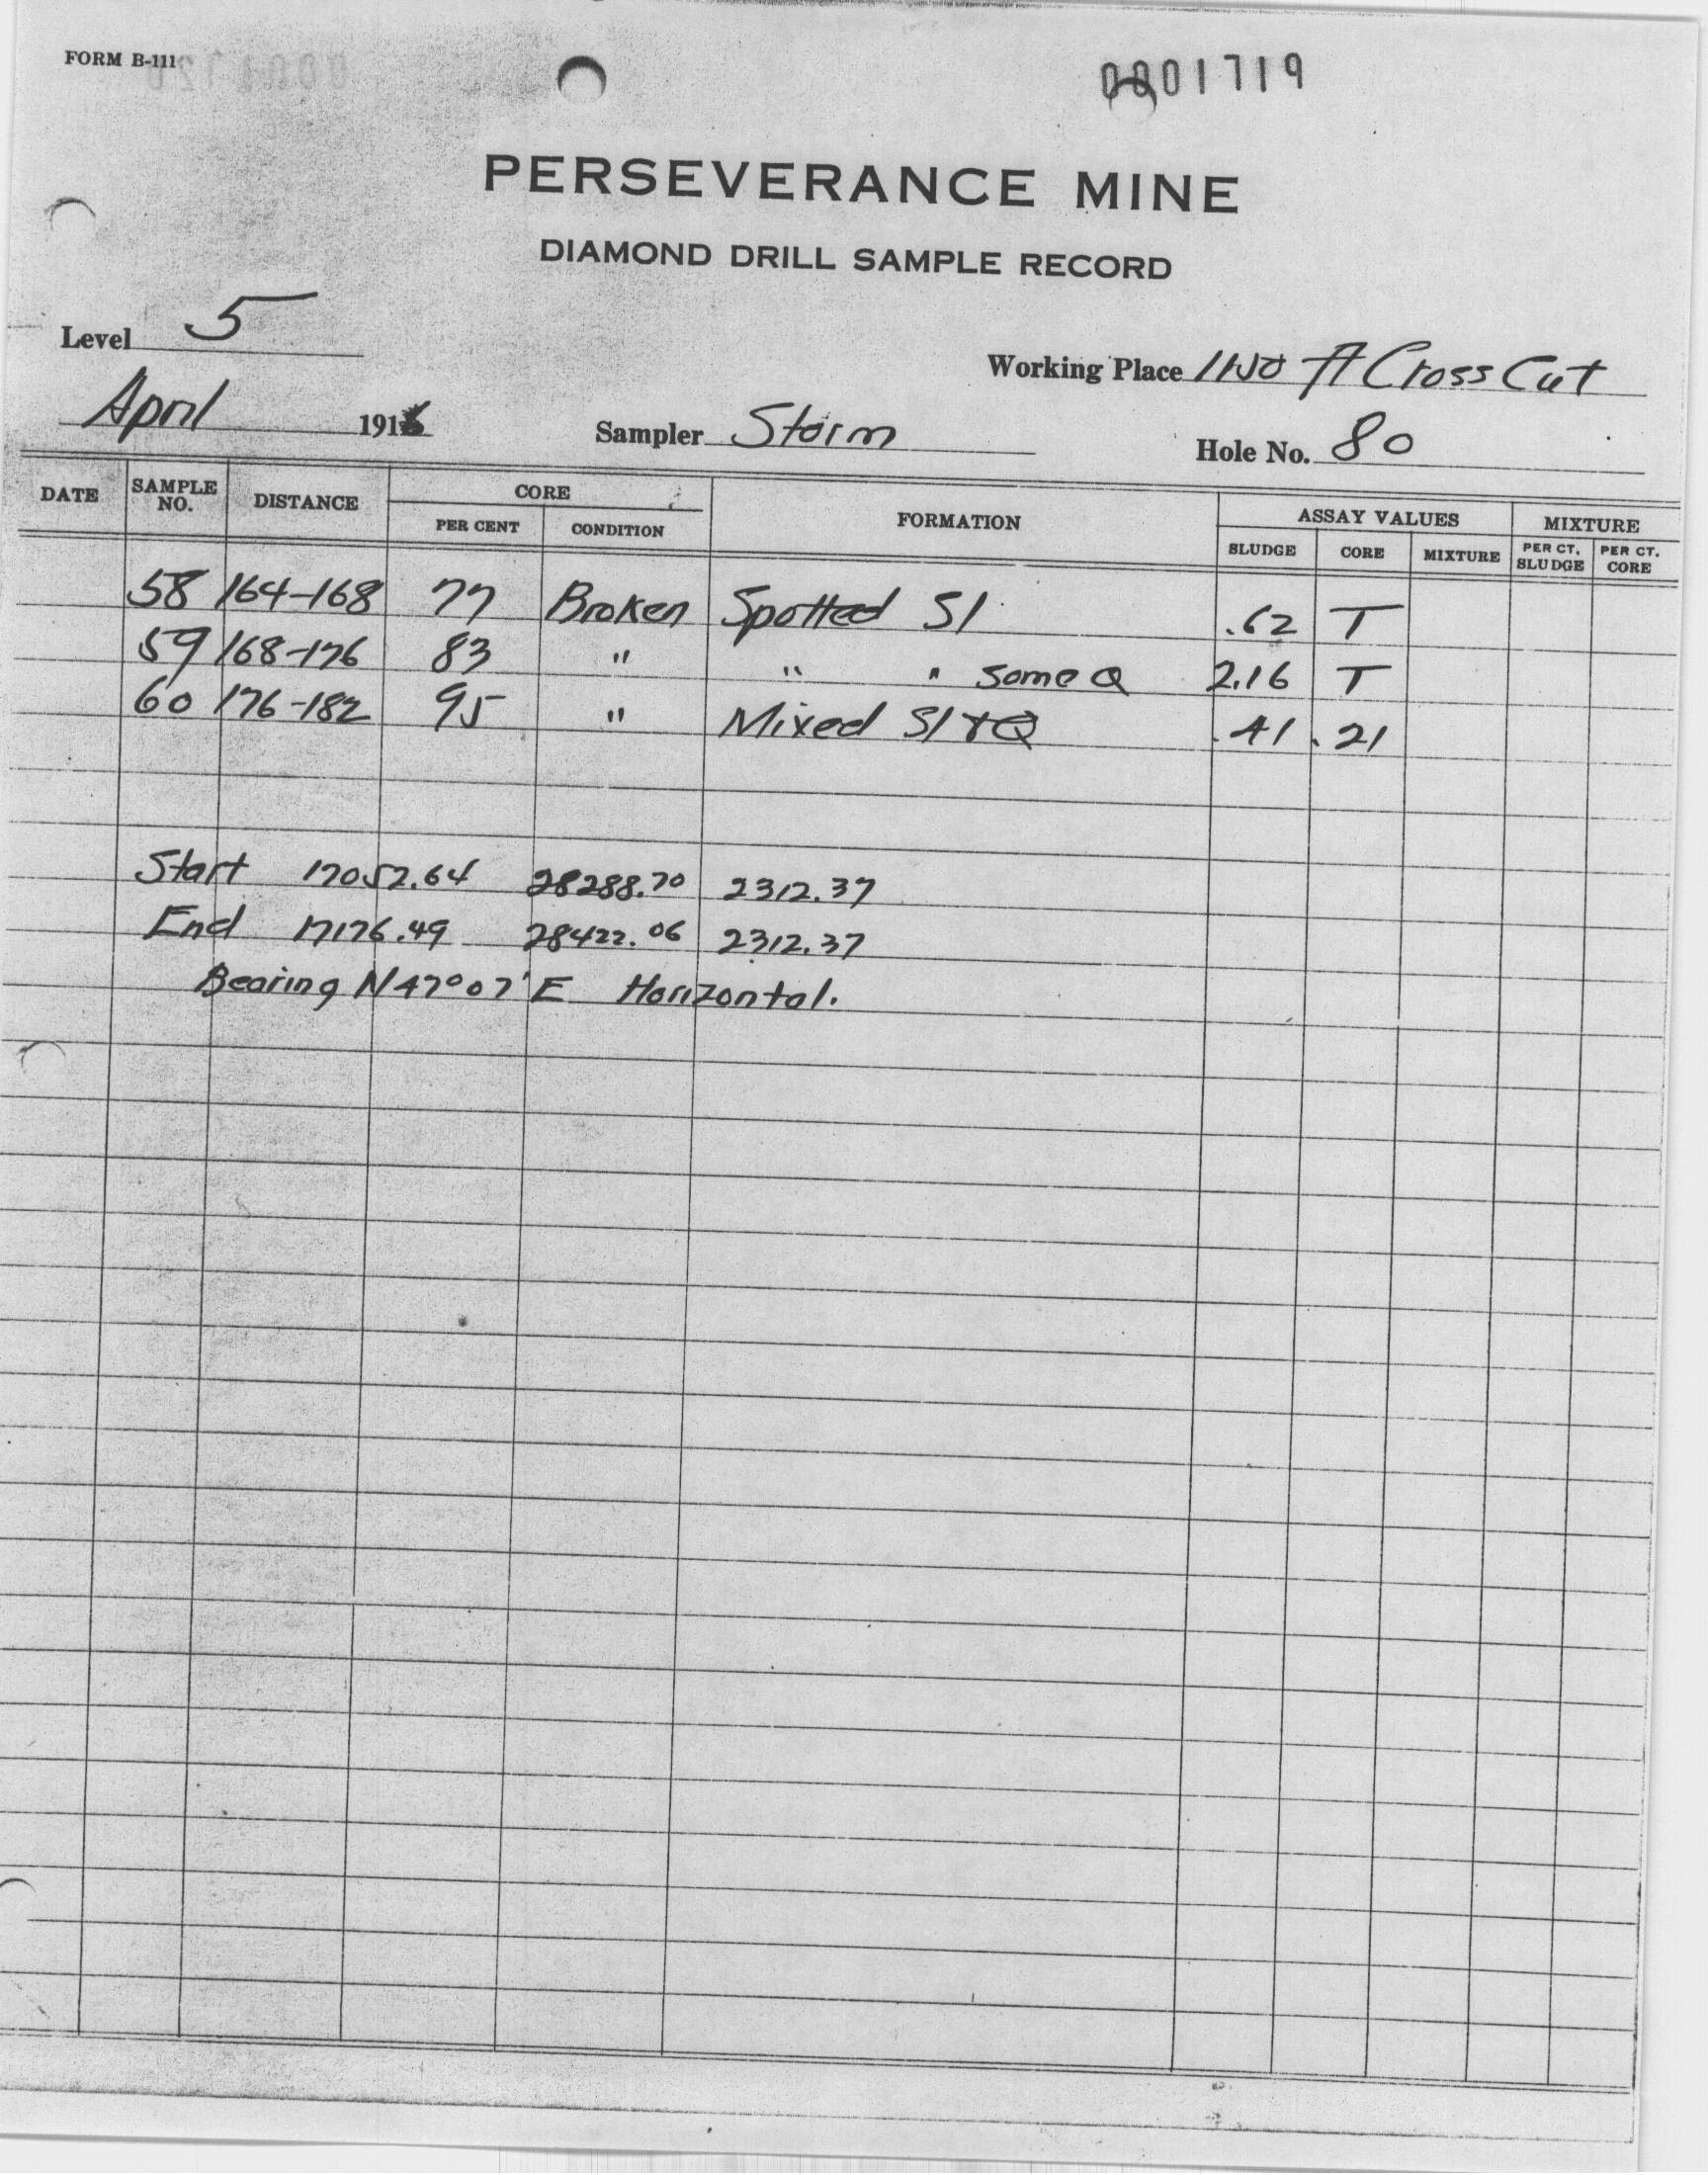 FORM B-111
0001719
PERSEVERANCE MINE
DIAMOND DRILL SAMPLE RECORD
Level 5
Working Place ft Cross Cut
April 1916 Sampler Storm Hole No. 80
DATE SAMPLE NO. DISTANCE CORE PER CENT CONDITION FORMATION ASSAY VALUES SLUDGE CORE MIXTURE MIXTURE PER CT. SLUDGE PER CT. CORE
58 164-168 77 Broken Spotted Sl .62 T
59 168-176 83 " " " some Q 2.16 T
60 176-182 95 " Mixed Sl + Q .41 .21
Start 17052.64 28288.70 2312.37
End 17176.49 28422.06 2312.37
Bearing N 47° 07' E Horizontal.